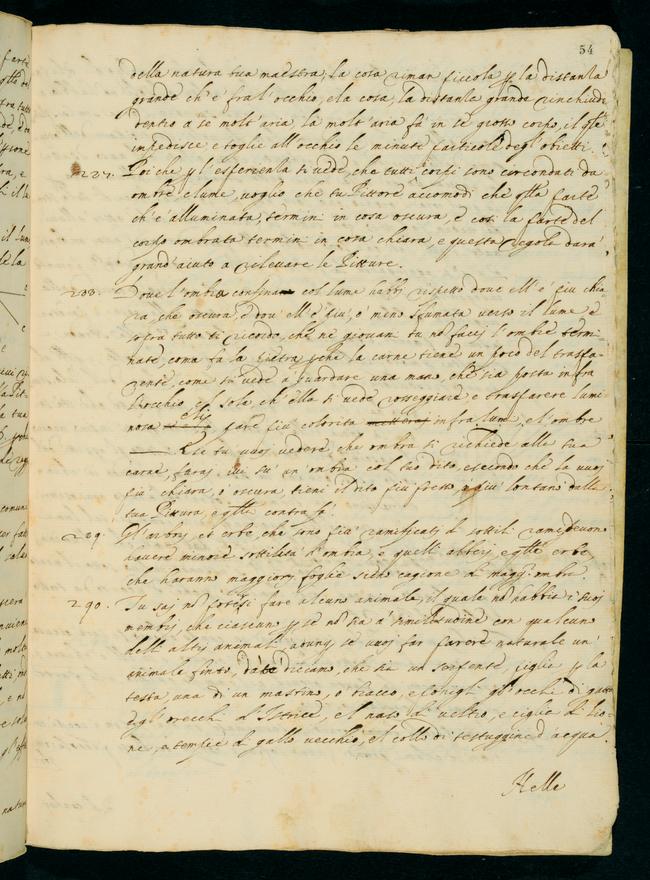 54
della natura tua maestra, la cosa riman piccola p la distantia
grande ch'e fra l'occhio, e la cosa, la distantia grande rinchiude
dentro a se molt'aria, la molt'aria fa in se grosso corpo, il qle
impedisce e toglie all'occhio le minute particole degl'obietti.
287. Poi che p l'esperienza si vede, che tutti corpi sono circondati da
ombre e lume, voglio che tu Pittore accomodi che qlla parte
ch'e alluminata, termini in cosa oscura, e cosi la parte del
corpo ombrata termini in cosa chiara, e questa regola dara
grand'aiuto a rilevare le Pitture.
288. Dove l'ombra confina col lume habbi rispetto dove ell'e piu chia
ra, che oscura, e dov'ell'e piu, o meno sfumata verso il lume e
sopra tutto ti ricordo, che ne giovani tu no facci l'ombre termi
nate, come fa la pietra, pche la carne tiene un poco del traspa
rente, come si vede a guardare una mano, che sia posta infra
l'occhio, e'l sole, ch'ella si vede rosseggiare, e trasparere lumi
nosa parte piu colorita infra lumi, e l'ombre
E se tu vuoi vedere che ombra si richiede alla tua
carne, farai su un'ombra col tuo dito, e secondo che la vuoi
piu chiara, o oscura, tieni il dito piu presso, o piu lontano dalla
tua Pittura, e qlla contrafa.
289. Gl'arbori et erbe, che sono piu ramificati di sottili rami devono
havere minore oscurita d'ombra, e quelli arbori, e qlle erbe,
che haranno maggiori foglie sieno cagione di magg. ombra.
290. Tu sai no potersi fare alcuno animale, il quale no habbia i suoi
membri, che ciascun p se no sia a similitudine con qualcuno
dell'altri animali adunq se vuoi far parere naturale un'
animale finto, diciamo, che sia un serpente, piglia p la
testa, una di un mastino, o bracco, e ponigli gl'occhi di gatto
e gl'orecchi d'Istrice, e'l naso di veltro, e ciglia di lio
ne, a tempie di gallo vecchio, e'l collo di testuggine d'acqua.
Nelle